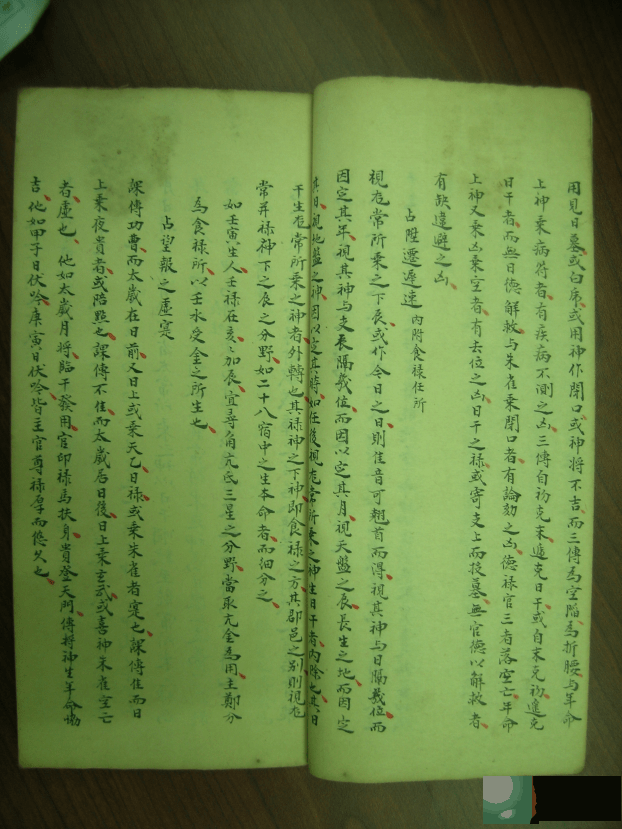 用見日墓或白虎或用神作閉口或神將不吉而三傳為空陷為折腰与年命
上神乘病符者有疾病不測之凶三傳自初克末進克日干或自末克初進克
日干者而無日德解救与朱雀乘閉口者有論劾之凶德祿官三者落空亡年命
上神又乘凶乘空者有去位之凶日干之祿或寄支上而投墓無官德以解救者
有缺違避之凶
占陞遷遲速內附食祿任所
視龙常所乘之下辰或作今日之日則佳音可翹首而得視其神与日隔幾位而
因定其年視其神与支乘隔幾位而因以定其月視天盤之辰長生之地而因定
其日視地盤之神因以定其時如任後視龙常所乘之神生日干者內除也其日
干生龙常所乘之神者外轉也其祿神之下神即食祿之方其郡邑之別則視龙
常并祿神下之辰之分野如二十八宿中之生本命者而細分之
如壬寅生人壬祿在亥加辰宜尋角亢氐三星之分野當取亢金為用主鄭分
為食祿所以壬水受金之所生也
占望報之虛寔
課傳功曹而太歲在日前又日上或乘天乙日祿或乘朱雀者寔也課傳佳而日
上乘夜貴者或陪點也課傳不佳而太歲居日後日上乘玄武或喜神朱雀空亡
者虛也他如太歲月將臨干發用官印祿馬扶身貴登天門傳將神生年命協
吉他如甲子日伏吟庚寅日伏吟皆主官尊祿厚而悠久也